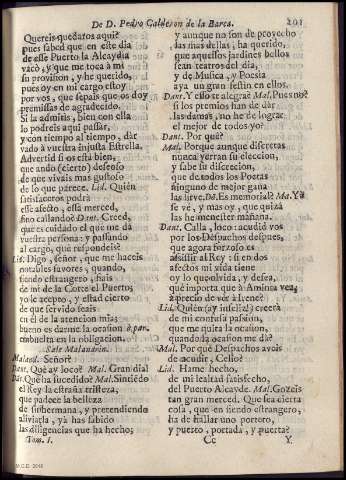 De D. Pedro Calderon de la Barca.
201
Quereis quedaros aqui?
pues sabed que en este dia
de esse Puerto la Alcaydia
vacó, y que me toca à mi
su provision, y he querido,
pues oy en mi cargo estoy
por vos, que sepais que os doy
premissas de agradecido.
Si la admitis, bien con ella
lo podreis aqui passar,
y con tiempo al tiempo, dàr
vado à vuestra injusta Estrella.
Advertid si os està bien,
que ando (cierto) deseoso
de que vivais mas gustoso
de lo que parece. Lid. Quièn
satisfaceros podrà
esse afecto, essa merced,
sino callando? Dant. Creed,
que es cuidado el que me dà
vuestra persona: y passando
al cargo, què respondeis?
Lid. Digo, señor, que me haceis
notables favores, quando,
siendo estrangero, fiais
de mi de la Corte el Puerto;
yo le accpto, y estad cierto
de que servido seais
en èl de la atencion mia;
bueno es darme la ocasion à part.
embuelta en la obligacion.
Sale Malandrin.
Maland. Señor?
Dant. Què ay loco? Mal. Gran dia!
Dant. Què ha sucedido? Mal. Sintiendo
el Rey la estraña tristeza,
que padece la belleza
de su hermana, y pretendiendo
aliviarla, ya has sabido
las diligencias que ha hecho;
Tom. I.
y aunque no son de provecho
las mas dellas, ha querido,
que aquessos jardines bellos
sean teatros del dia,
y de Musica, y Poesia
aya un gran festin en ellos.
Dant. Y esso te alegra? Mal. Pues no?
si los premios han de dàr
las damas, no he de lograr
el mejor de todos yo?
Dant. Por què?
Mal. Porque aunque discretas
nunca yerran su eleccion,
y sabe su discrecion,
que de todos los Poetas
ninguno de mejor gana
las sirve. D. Es memorial? Ma. Ya
se vè, y mas oy, que quizà
las he menester mañana.
Dant. Calla, loco: acudid vos
por los Despachos despues,
que agora forzoso es
assistir al Rey: si en dos
afectos mi vida tiene
oy lo que olvida, y desea,
què importa que à Aminta vea,
à precio de vèr à Irene?
Lid. Quièn (ay infeliz!) creerà
de mi confusa passion,
que me quita la ocasion,
quando la ocasion me dà?
Mal. Por què Despachos aveis
de acudir, Celio?
Lid. Hame hecho,
de mi lealtad satisfecho,
del Puerto Alcayde. Mal. Gozeis
tan gran merced. Que sea cierta
cosa, que en siendo estrangero,
ha de hallar uno portero,
y puerto, portada, y puerta?
Cc
Y.